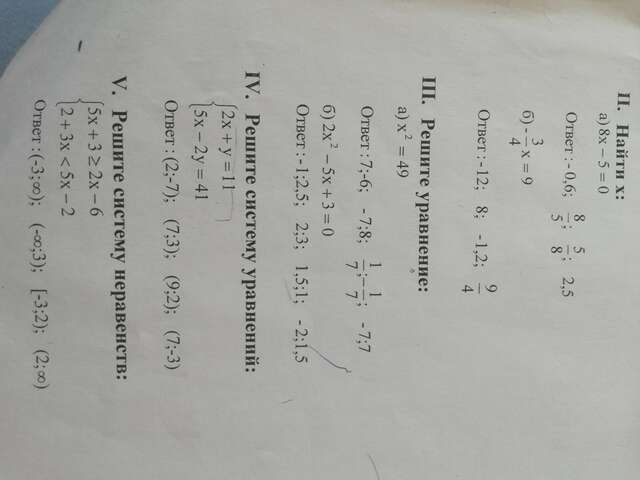 II. Найти x:
а) 8x − 5 = 0
Ответ: - 0,6; 8/5; 5/8; 2,5
б) - 3/4 x = 9
Ответ: - 12; 8; - 1,2; 9/4
III. Решите уравнение:
а) x² = 49
Ответ: 7;-6; - 7;8; 1/7;-1/7; - 7;7
б) 2x² − 5x + 3 = 0
Ответ: - 1;2,5; 2;3; 1,5;1; - 2;1,5
IV. Решите систему уравнений:
{2x + y = 11
5x − 2y = 41
Ответ: (2;-7); (7;3); (9;2); (7;-3)
V. Решите систему неравенств:
{5x + 3 ≥ 2x − 6
2 + 3x < 5x − 2
Ответ: (-3;∞); (-∞;3); [-3;2); (2;∞)